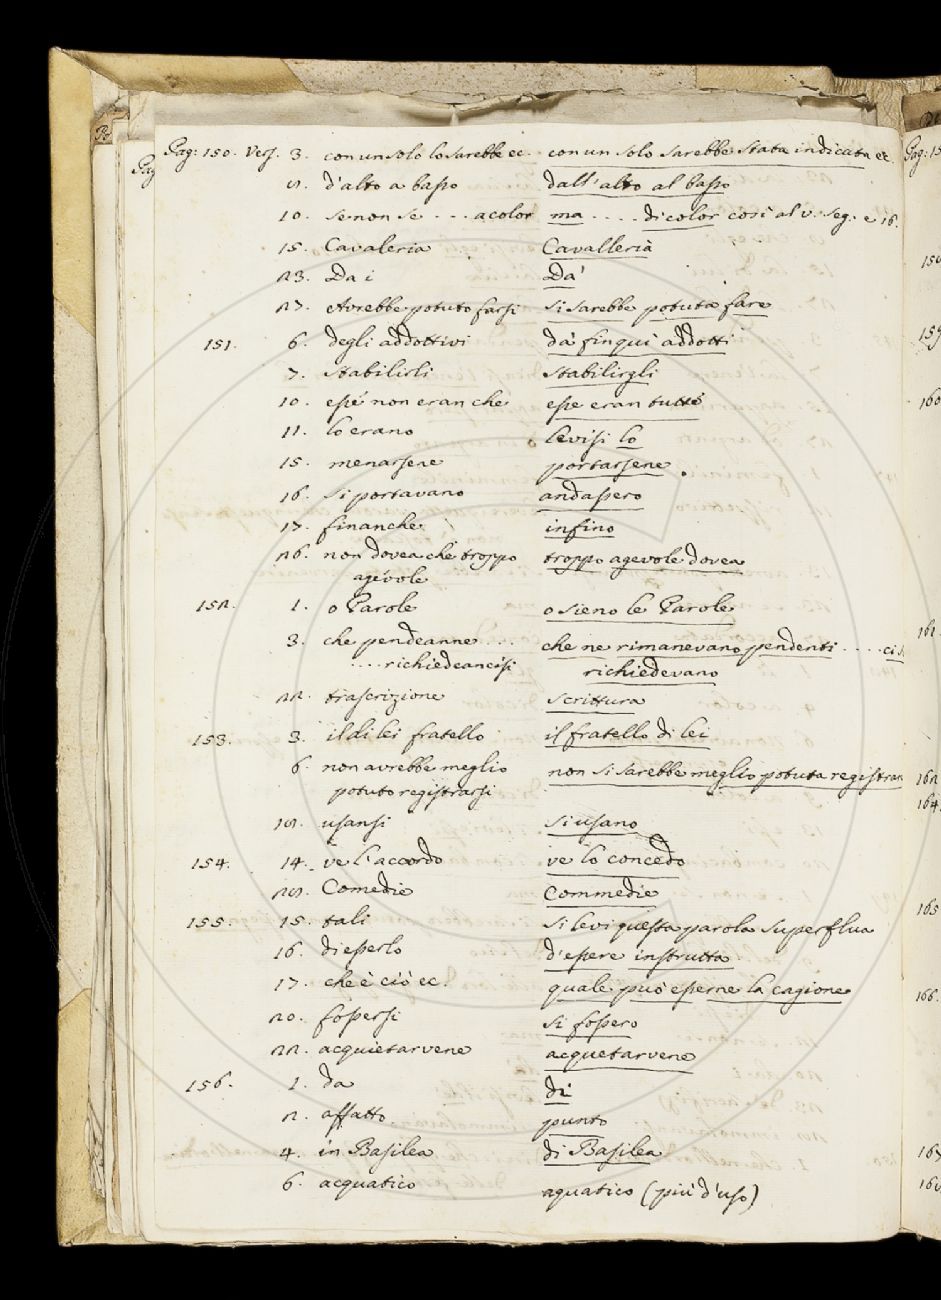 Pag: 150. Vers. 3. con un solo lo sarebbe ec. con un solo sarebbe stata indicata ec.
9. d'alto a basso dall'alto al basso
10. se non se .... a color ma .... di color così al v. seg. e 16.
15. Cavaleria Cavalleria
23. Da i Da'
27. Avrebbe potuto farsi si sarebbe potuta fare
151. 6. degli addottivi da' finquì addotti
7. stabilirli stabilirgli
10. esse non eran che esse eran tutte
11. lo erano levisi lo
15. menarsene portarsene
16. si portavano andassero
17. finanche infino
26. non dovea che troppo troppo agevole dovea
agevole
152. 1. o Parole o sieno le Parole
3. che pendeanne .... che ne rimanevano pendenti .... ci s
.... richiedeancisi richiedevano
22. trascrizione scrittura
153. 3. il di lei fratello il fratello di lei
6. non avrebbe meglio non si sarebbe meglio potuta registrar
potuto registrarsi
19. usansi si usano
154. 14. ve l'accordo ve lo concedo
29. Comedie Commedie
155. 15. tali si levi questa parola superflua
16. di esserlo d'essere instrutta
17. che è ciò ec. quale può esserne la cagione
20. fossersi si fossero
22. acquietarvene acquetarvene
156. 1. da di
2. affatto punto
4. in Basilea di Basilea
6. acquatico aquatico (più d'uso)
Pag
Pag: 15
159
160
161
162
164.
165
166.
167